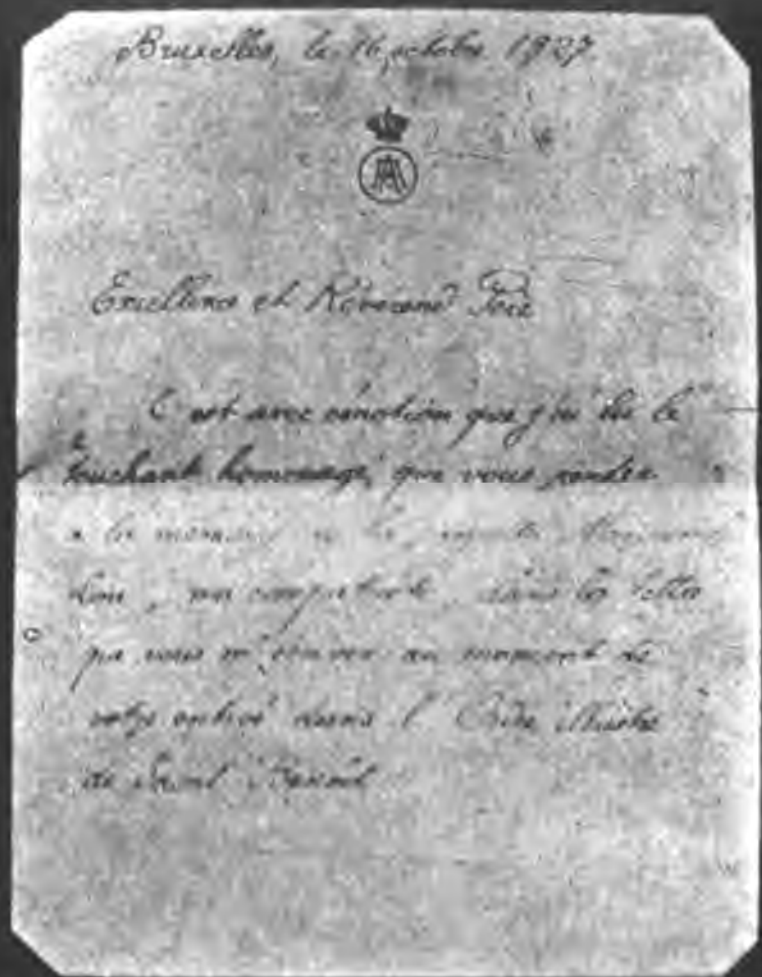 Bruxelles, le 16 octobre 1927.
Excellence et Révérend Père
C'est avec émotion que j'ai lu le
touchant hommage, que vous rendez
à la mémoire de la
Lou, ma compatriote, dans la lettre
que vous m'écrivez au moment de
votre entrée dans l'Ordre illustre
de Saint Benoît